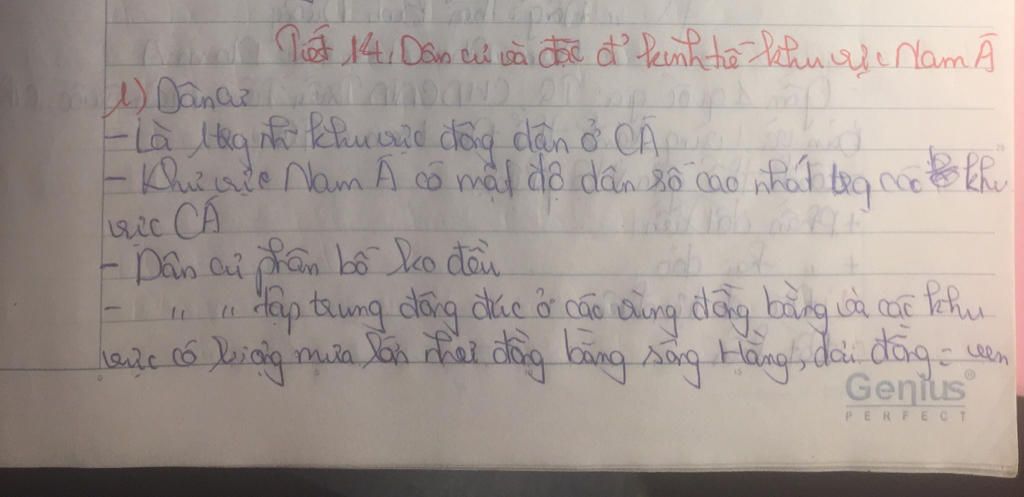 Tiết 14. Dân cư và đặc đ' kinh tế khu vực Nam Á
1) Dân cư
- Là 1 trg nh~ khu vực đông dân ở CÁ
- Khu vực Nam Á có mật độ dân số cao nhất trg các khu
vực CÁ
- Dân cư phân bố ko đều
- " " tập trung đông đúc ở các vùng đồng bằng và các khu
vực có lượng mưa lớn như đồng bằng sông Hằng, dải đồng = ven
Genius®
PERFECT